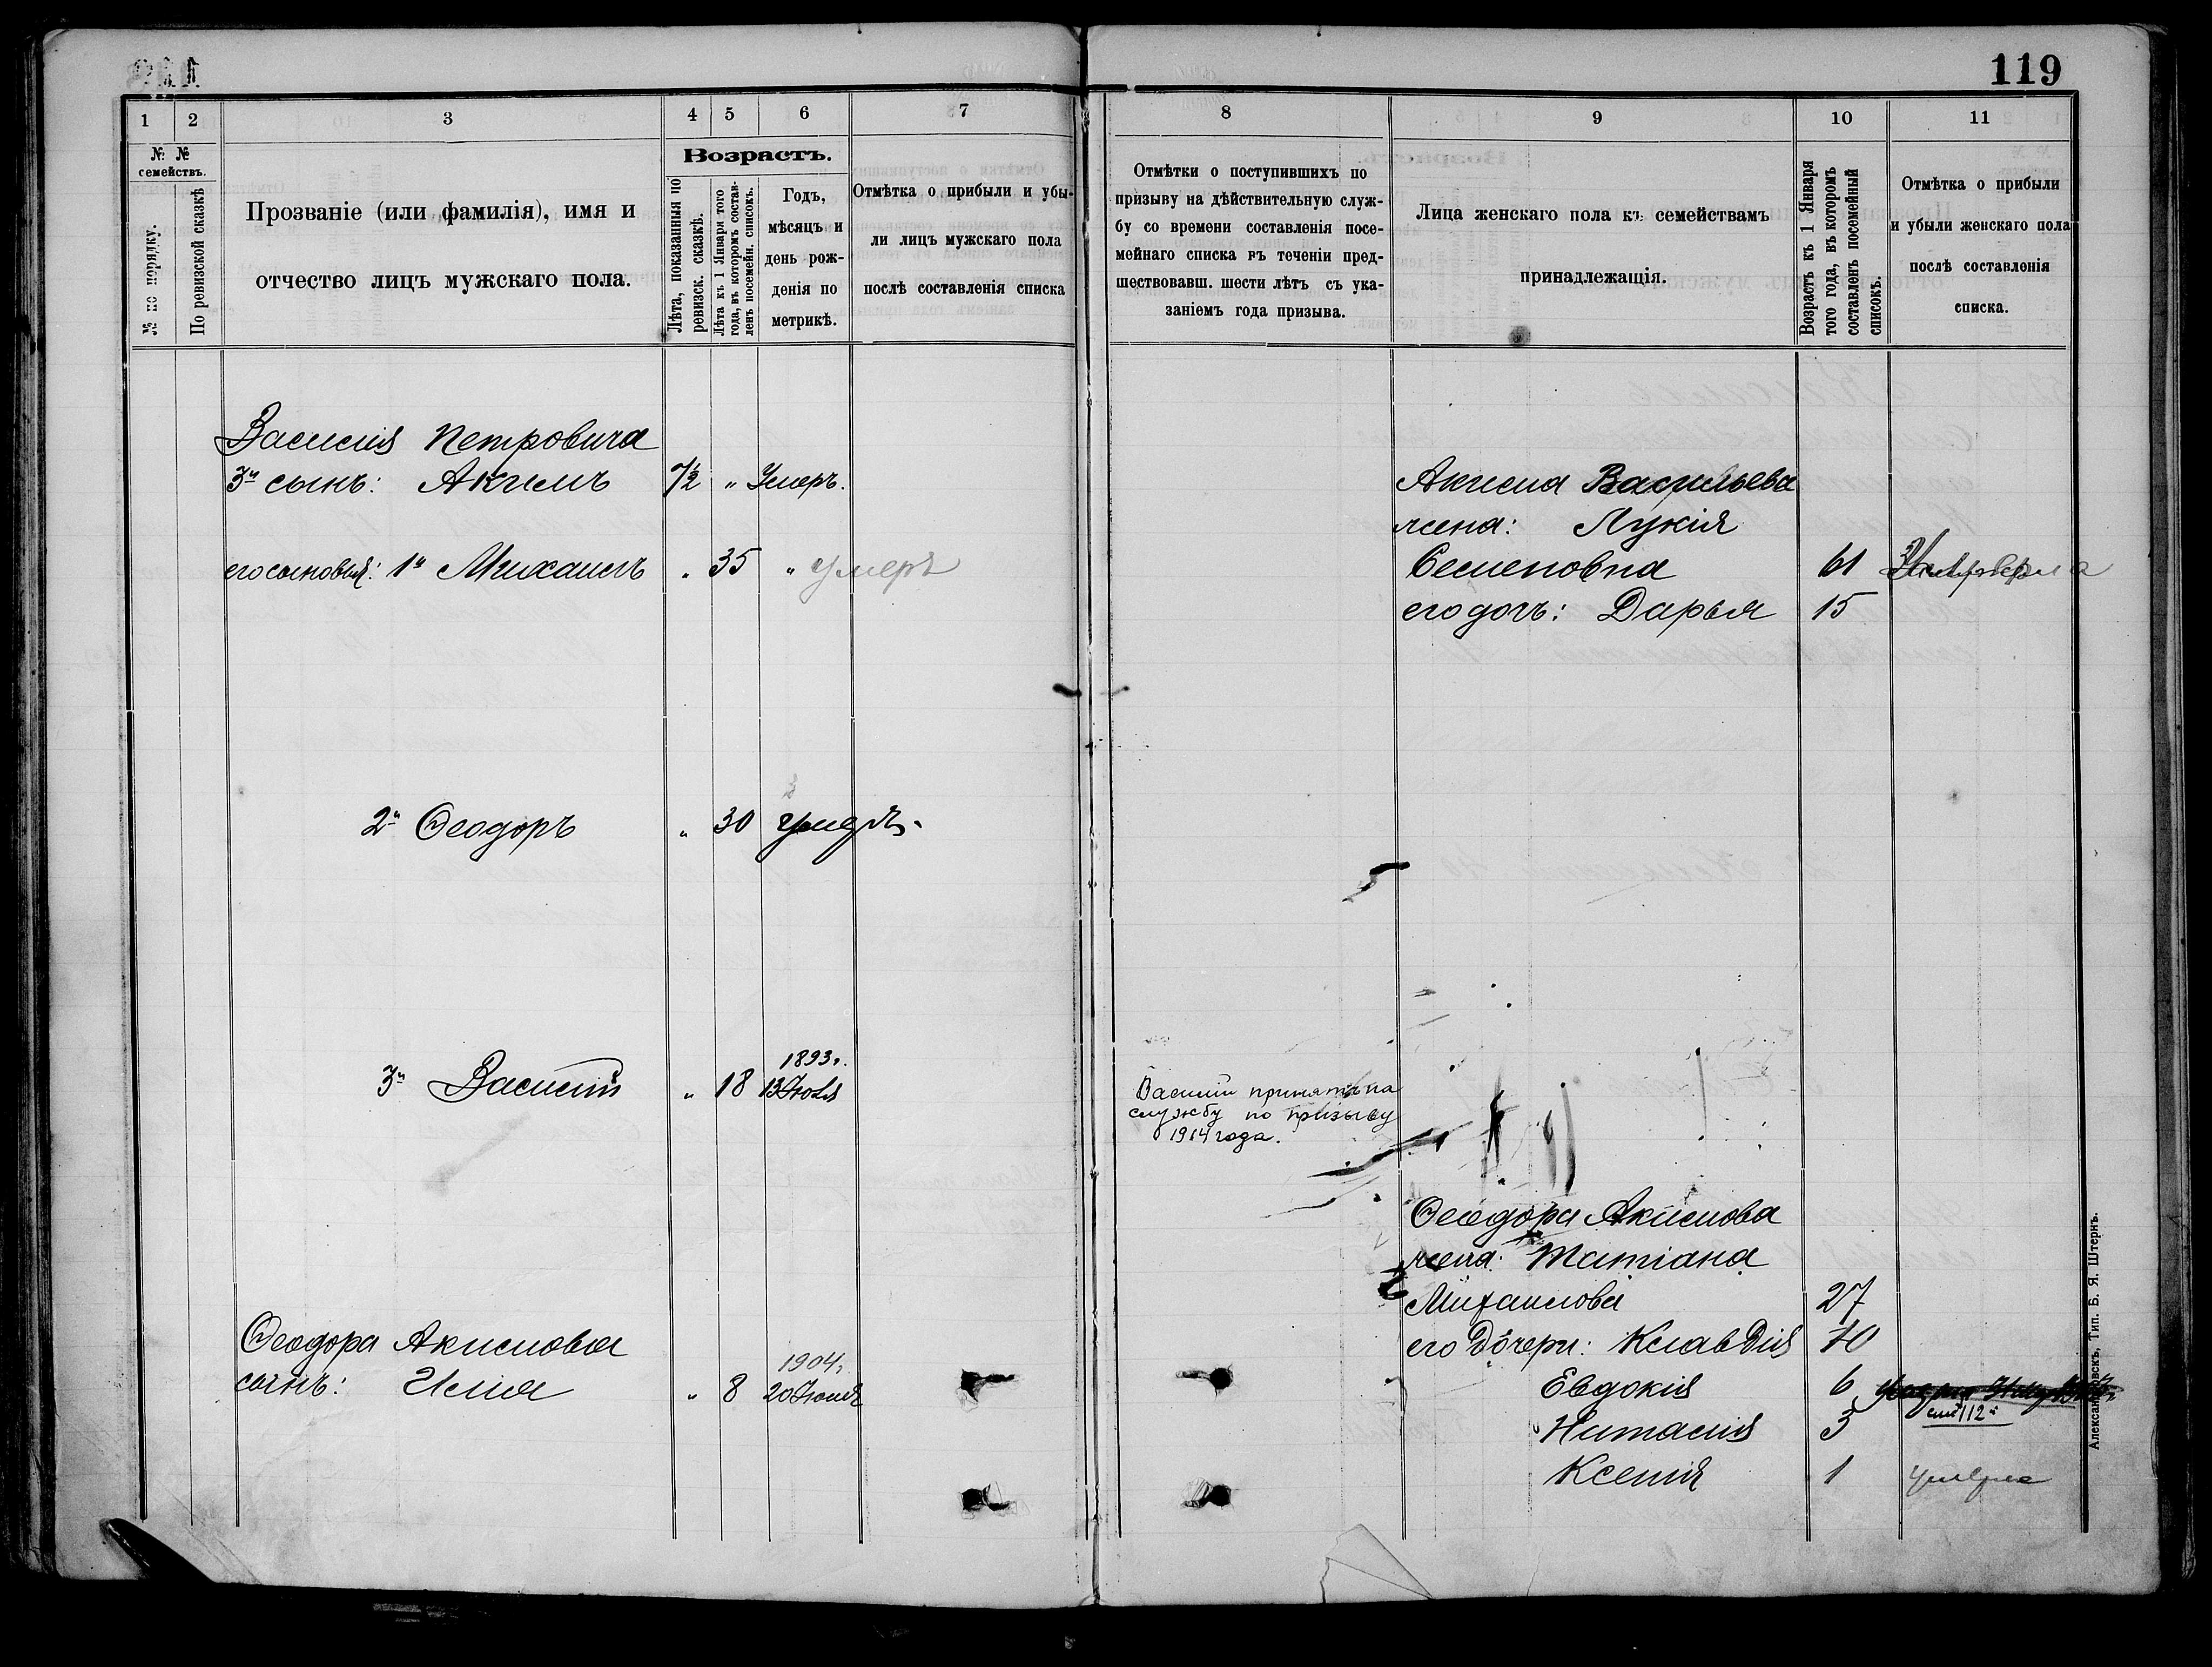 119
1
2
3
4
5
6
7
№ №
семействъ.
№ по порядку.
По ревизской сказкѣ
Прозваніе (или фамилія), имя и
отчество лицъ мужскаго пола.
Возрастъ.
Лѣта, показанныя по
ревизск. сказкѣ.
Лѣта къ 1 Января того
года, въ которомъ состав-
ленъ посемейн. списокъ.
Годъ,
мѣсяцъ и
день рож-
денія по
метрикѣ.
Отмѣтка о прибыли и убы-
ли лицъ мужскаго пола
послѣ составленія списка
Василія Петровича
3й сынъ: Акимъ 7½ „ Умеръ.
его сыновья: 1й Михаилъ „ 35 „ умеръ
2й Ѳеодоръ „ 30 умеръ.
1893г.
3й Василій „ 18 13 Іюля
Ѳеодора Акимова
1904г.
сынъ: Илья „ 8 20 Іюля
8
9
10
11
Отмѣтки о поступившихъ по
призыву на дѣйствительную служ-
бу со времени составленія посе-
мейнаго списка въ теченіи пред-
шествовавш. шести лѣтъ съ ука-
заніемъ года призыва.
Лица женскаго пола къ семействамъ
принадлежащія.
Возрастъ къ 1 Января
того года, въ которомъ
составленъ посемейный
списокъ.
Отмѣтка о прибыли
и убыли женскаго пола
послѣ составленія
списка.
Акима Васильева
жена: Лукія
Семеновна 61
его дочь: Дарья 15
Василій принятъ на
службу по призыву
1914 года.
Ѳеодора Акимова
жена: Татіана
Михаилова 27
его дочери: Клавдія 10
Евдокія 6
112
Наталія 3
Ксенія 1 умерла
Александровскъ, Тип. Б. Я. Штернъ.